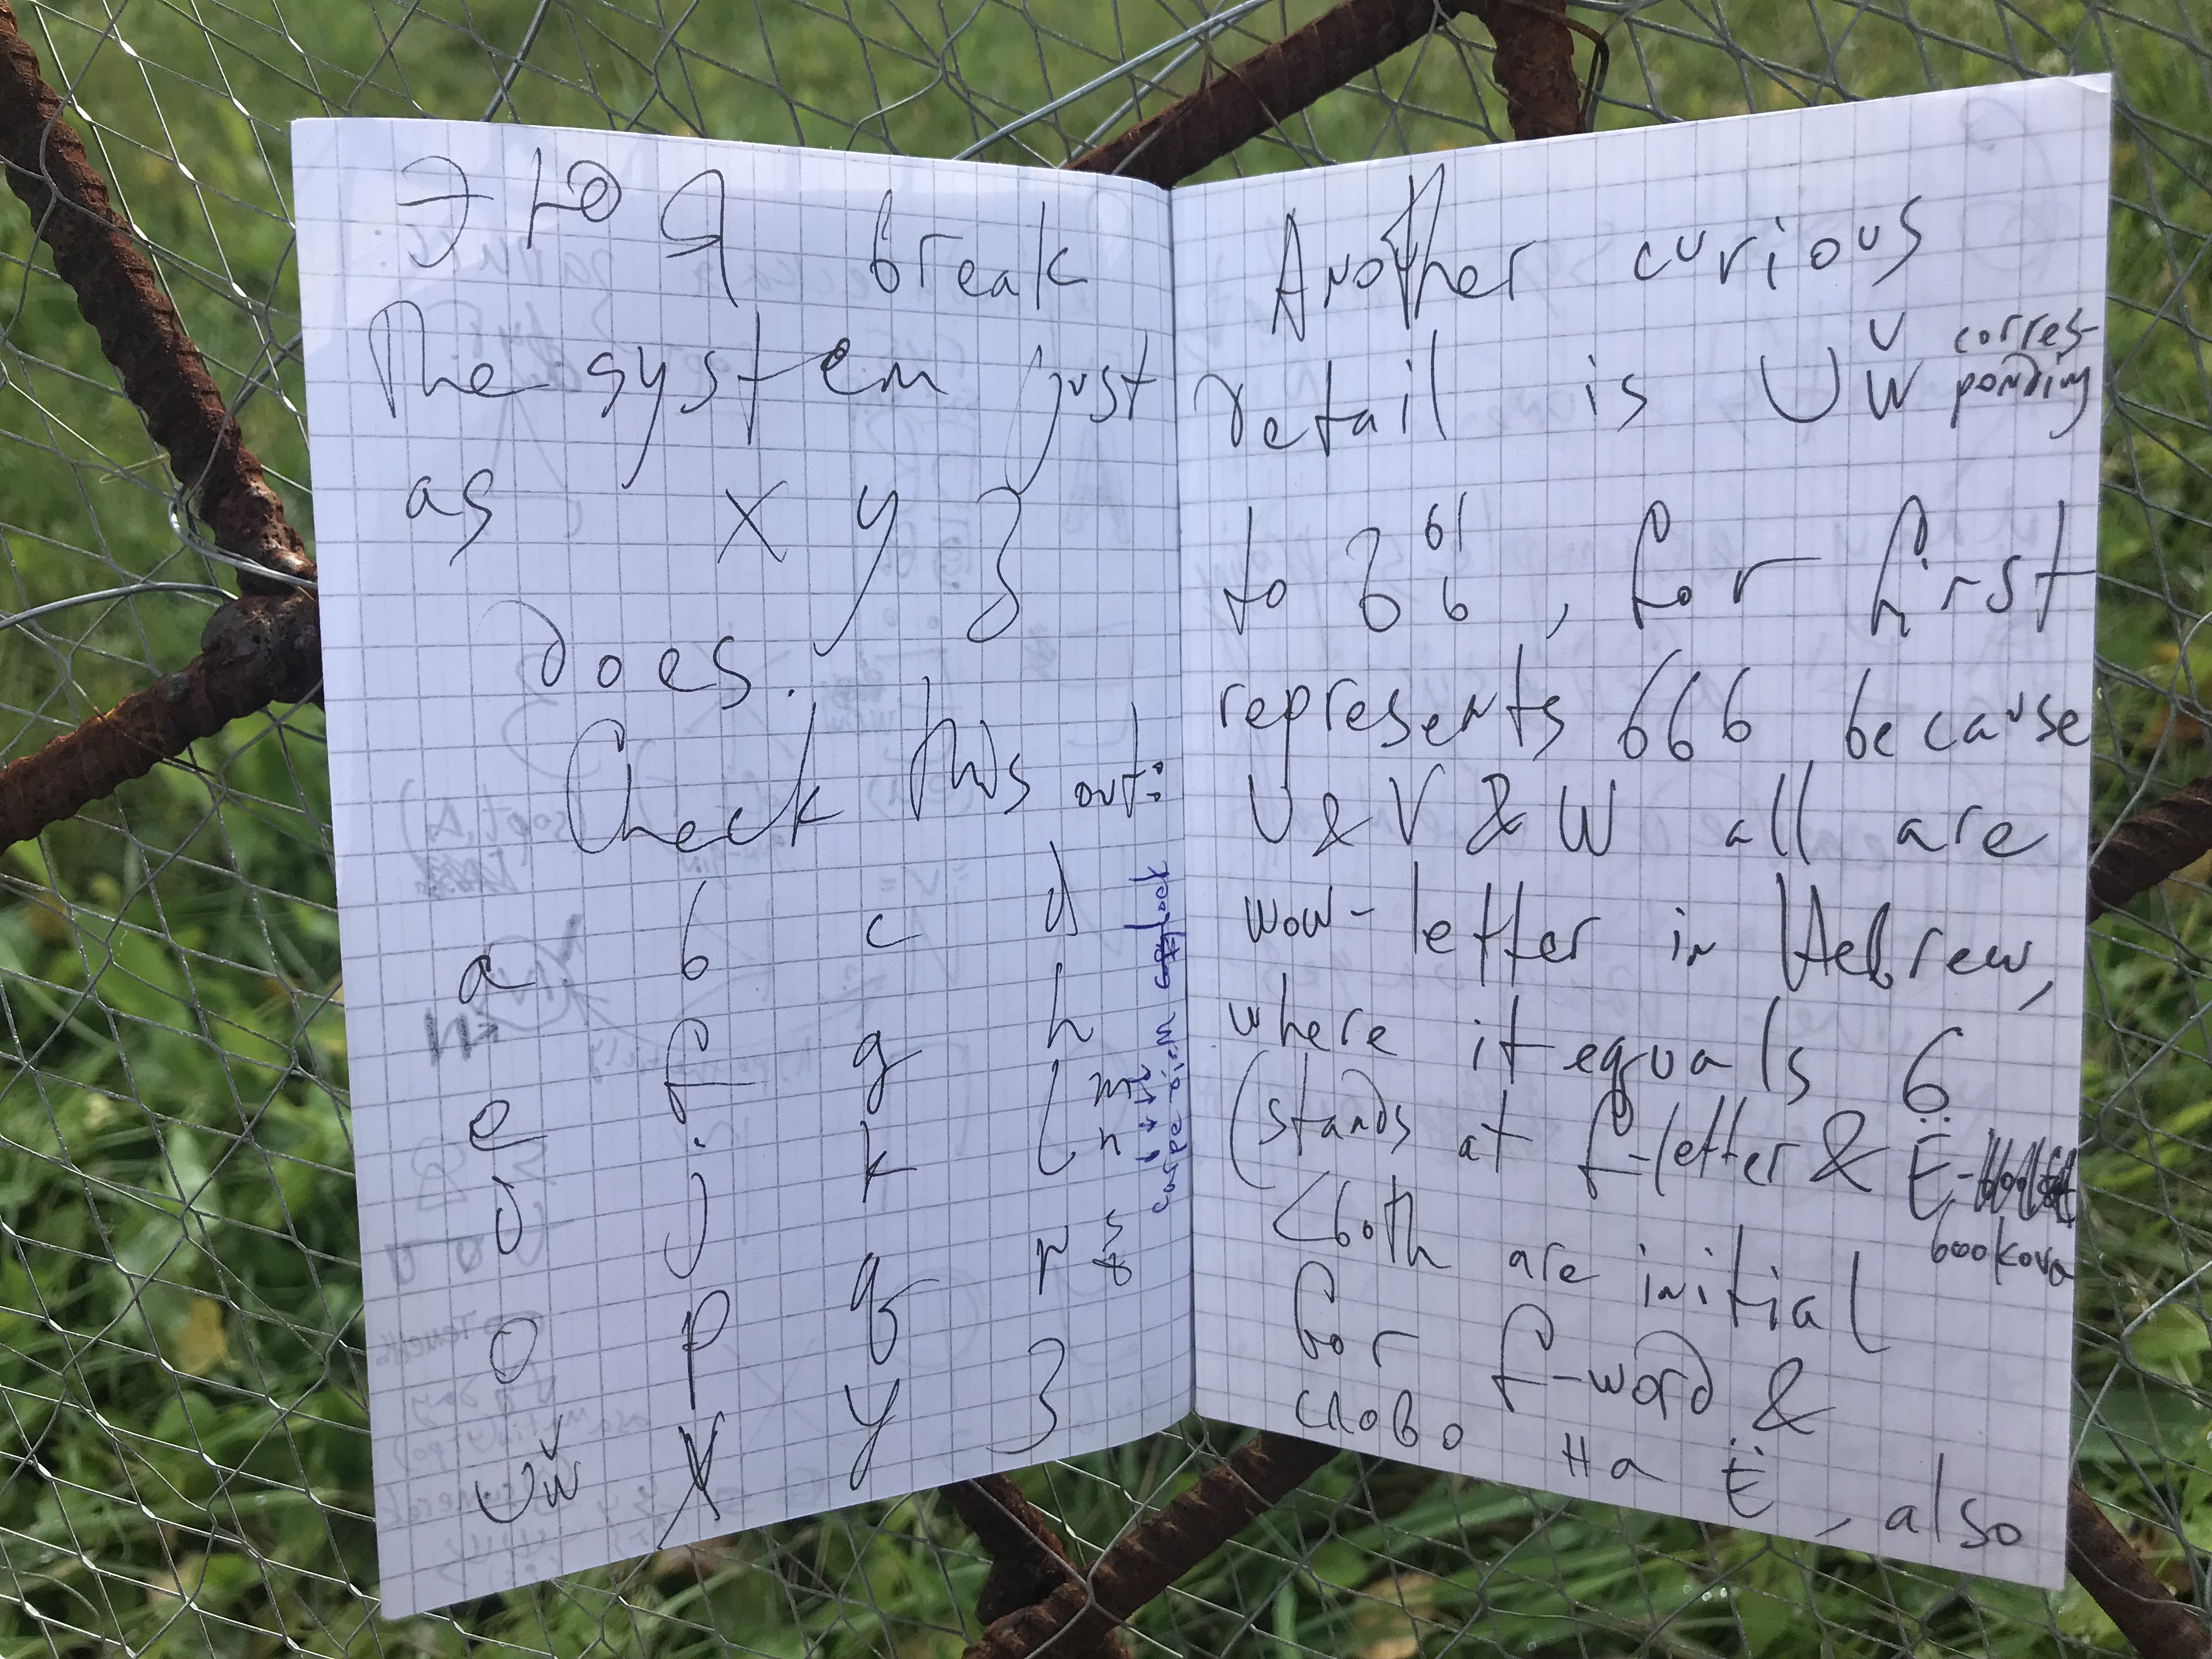 Э Ю Я break
The system just
as x y z
does.
Check this out:
a b c d
e f g h
i j k l m n
o p q r s t
u v w x y z
carpe diem
Another curious
detail is U V W corres-
ponding
to Ъ Ы Ь, for first
represents 666 because
U & V & W all are
wow-letter in Hebrew,
where it equals 6
(stands at f-letter & Ё-
bookova
<both are initial
for f-word &
слово на Ё, also